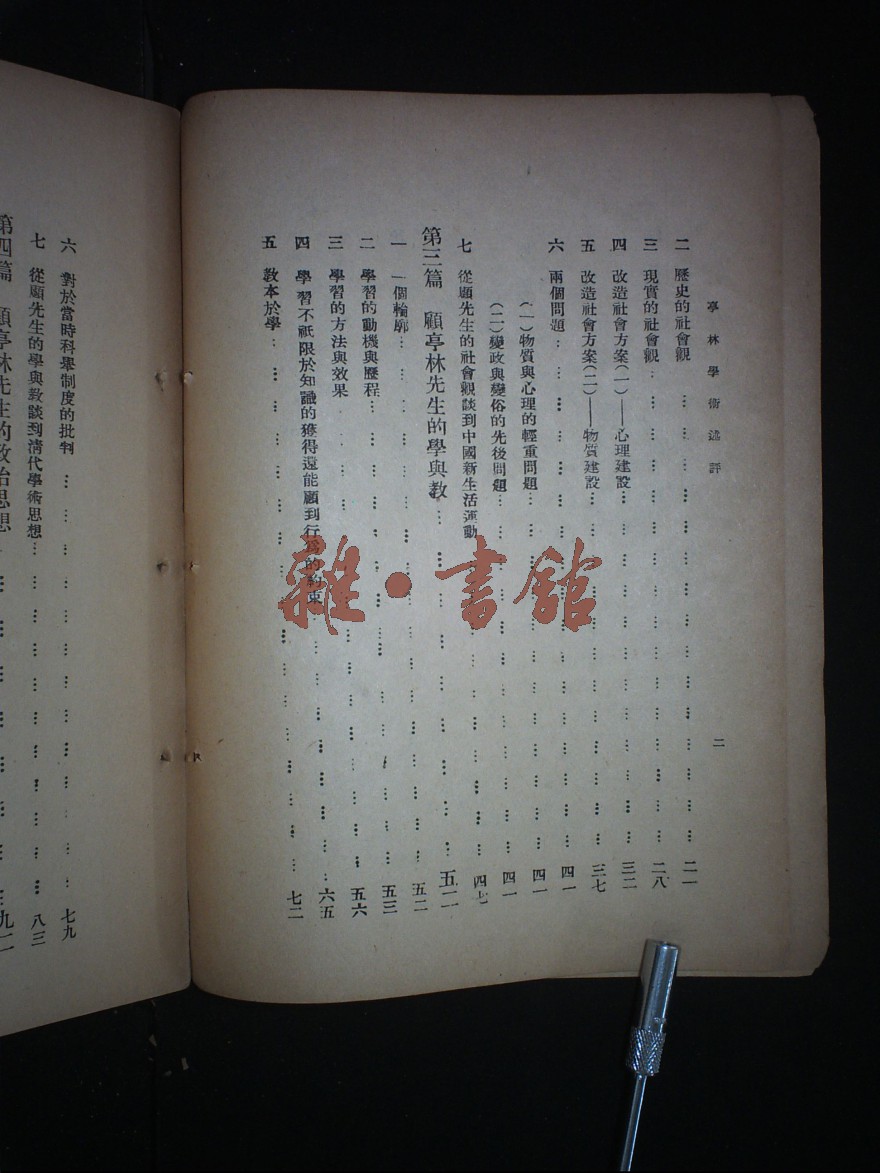 亭林學術述評
二
二 歷史的社會觀 二一
三 現實的社會觀 二八
四 改造社會方案(一)——心理建設 三二
五 改造社會方案(二)——物質建設 三七
六 兩個問題 四一
(一)物質與心理的輕重問題 四一
(二)變政與變俗的先後問題 四一
七 從顧先生的社會觀談到中國新生活運動 四七
第三篇 顧亭林先生的學與教 五二
一 一個輪廓 五二
二 學習的動機與歷程 五三
三 學習的方法與效果 五六
四 學習不祇限於知識的獲得還能顧到行爲的約束 六五
五 教本於學 七二
六 對於當時科舉制度的批判 七九
七 從顧先生的學與教談到清代學術思想 八三
第四篇 顧亭林先生的政治思想
雜·書館